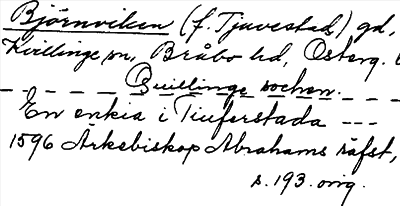 Björnviken (f. Tjuvestad) gd,
Kvillinge sn, Bråbo hd, Österg.
Quillinge sochen.
En enkia i Tiuferstada ---
1596 Arkebiskop Abrahams räfst,
s. 193. orig.